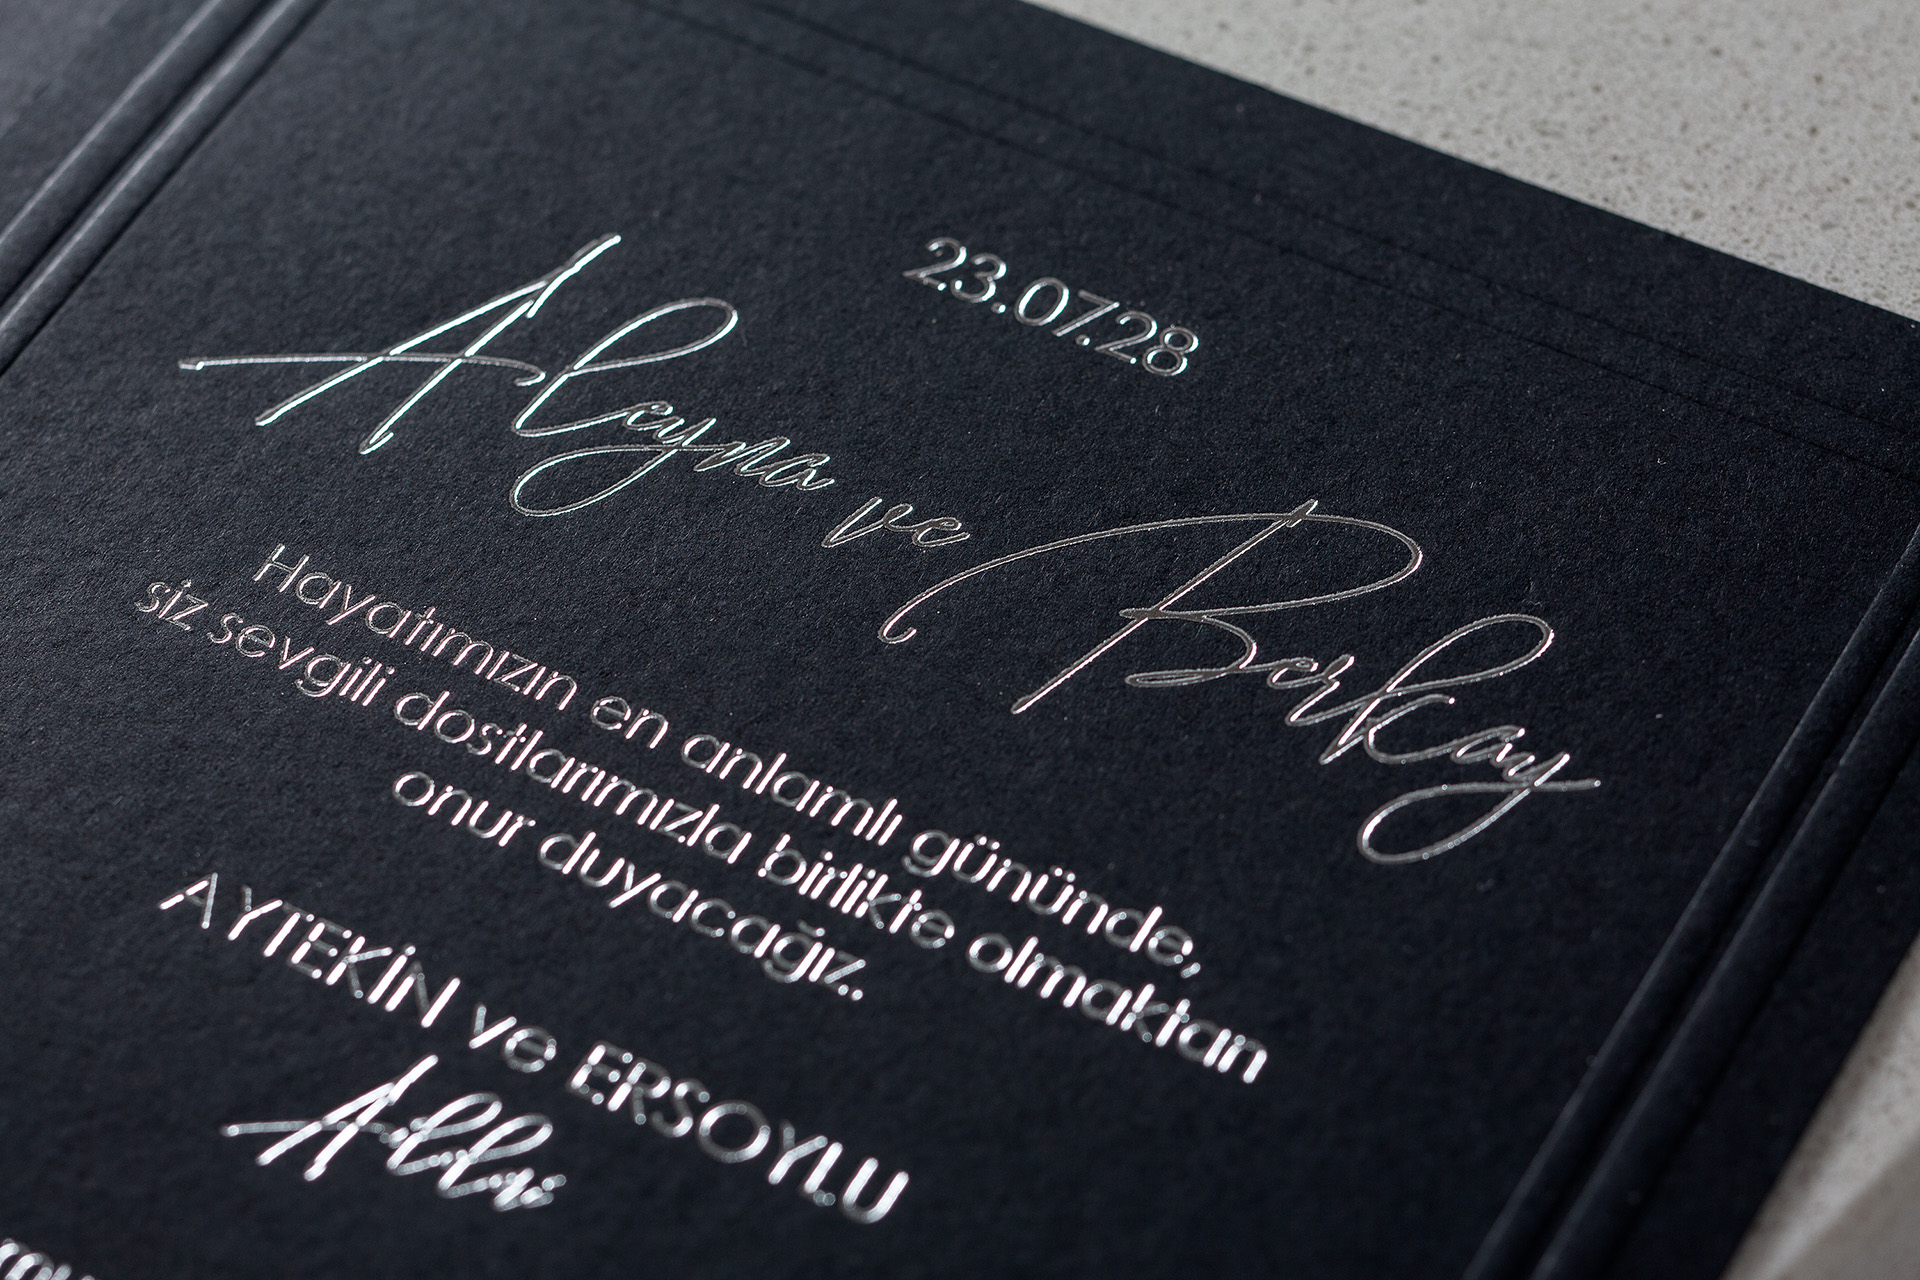 23.07.28
Aleyna ve Berkay
Hayatımızın en anlamlı gününde,
siz sevgili dostlarımızla birlikte olmaktan
onur duyacağız.
AYTEKİN ve ERSOYLU